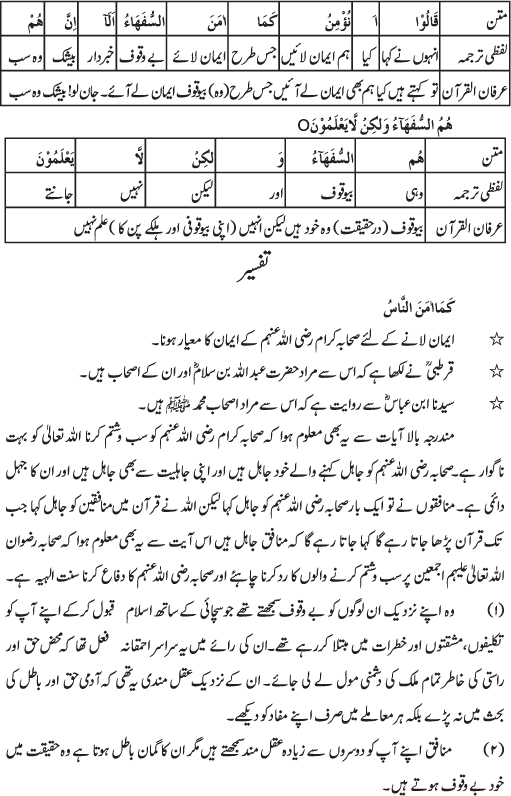 متن قَالُوْا اَ نُؤْمِنُ كَمَا اٰمَنَ السُّفَهَآءُ اَلَآ اِنَّ هُمْ
لفظی ترجمہ انہوں نے کہا کیا ہم ایمان لائیں جس طرح ایمان لائے بے وقوف خبردار بیشک وہ سب
عرفان القرآن تو کہتے ہیں کیا ہم بھی ایمان لے آئیں جس طرح (وہ) بیوقوف ایمان لے آئے۔ جان لو! بیشک وہ سب
هُمُ السُّفَهَآءُ وَلٰكِنْ لَّا يَعْلَمُوْنَO
متن هُم السُّفَهَآءُ وَ لٰكِنْ لَّا يَعْلَمُوْنَ
لفظی ترجمہ وہی بیوقوف اور لیکن نہیں جانتے
عرفان القرآن بیوقوف (درحقیقت) وہ خود ہیں لیکن انہیں (اپنی بیوقوفی اور ہلکے پن کا) علم نہیں
تفسیر
كَمَا اٰمَنَ النَّاسُ
☆ ایمان لانے کے لئے صحابہ کرام رضی اللہ عنہم کے ایمان کا معیار ہونا۔
☆ قرطبیؒ نے لکھا ہے کہ اس سے مراد حضرت عبداللہ بن سلامؓ اور ان کے اصحاب ہیں۔
☆ سیدنا ابن عباسؓ سے روایت ہے کہ اس سے مراد اصحاب محمد ﷺ ہیں۔
مندرجہ بالا آیات سے یہ بھی معلوم ہوا کہ صحابہ کرام رضی اللہ عنہم کو سب و شتم کرنا اللہ تعالیٰ کو بہت
ناگوار ہے۔ صحابہ رضی اللہ عنہم کو جاہل کہنے والے خود جاہل ہیں اور اپنی جاہلیت سے بھی جاہل ہیں اور ان کا جہل
دائمی ہے۔ منافقوں نے تو ایک بار صحابہ رضی اللہ عنہم کو جاہل کہا لیکن اللہ نے قرآن میں منافقین کو جاہل کہا جب
تک قرآن پڑھا جاتا رہے گا کہا جاتا رہے گا کہ منافق جاہل ہیں اس آیت سے یہ بھی معلوم ہوا کہ صحابہ رضوان
اللہ تعالیٰ علیہم اجمعین پر سب و شتم کرنے والوں کا رد کرنا چاہئے اور صحابہ رضی اللہ عنہم کا دفاع کرنا سنت الٰہیہ ہے۔
(۱) وہ اپنے نزدیک ان لوگوں کو بے وقوف سمجھتے تھے جو سچائی کے ساتھ اسلام قبول کرکے اپنے آپ کو
تکلیفوں، مشقتوں اور خطرات میں مبتلا کر رہے تھے۔ ان کی رائے میں یہ سراسر احمقانہ فعل تھا کہ محض حق اور
راستی کی خاطر تمام ملک کی دشمنی مول لے لی جائے۔ ان کے نزدیک عقل مندی یہ تھی کہ آدمی حق اور باطل کی
بحث میں نہ پڑے بلکہ ہر معاملے میں صرف اپنے مفاد کو دیکھے۔
(۲) منافق اپنے آپ کو دوسروں سے زیادہ عقل مند سمجھتے ہیں مگر ان کا گمان باطل ہوتا ہے وہ حقیقت میں
خود بے وقوف ہوتے ہیں۔